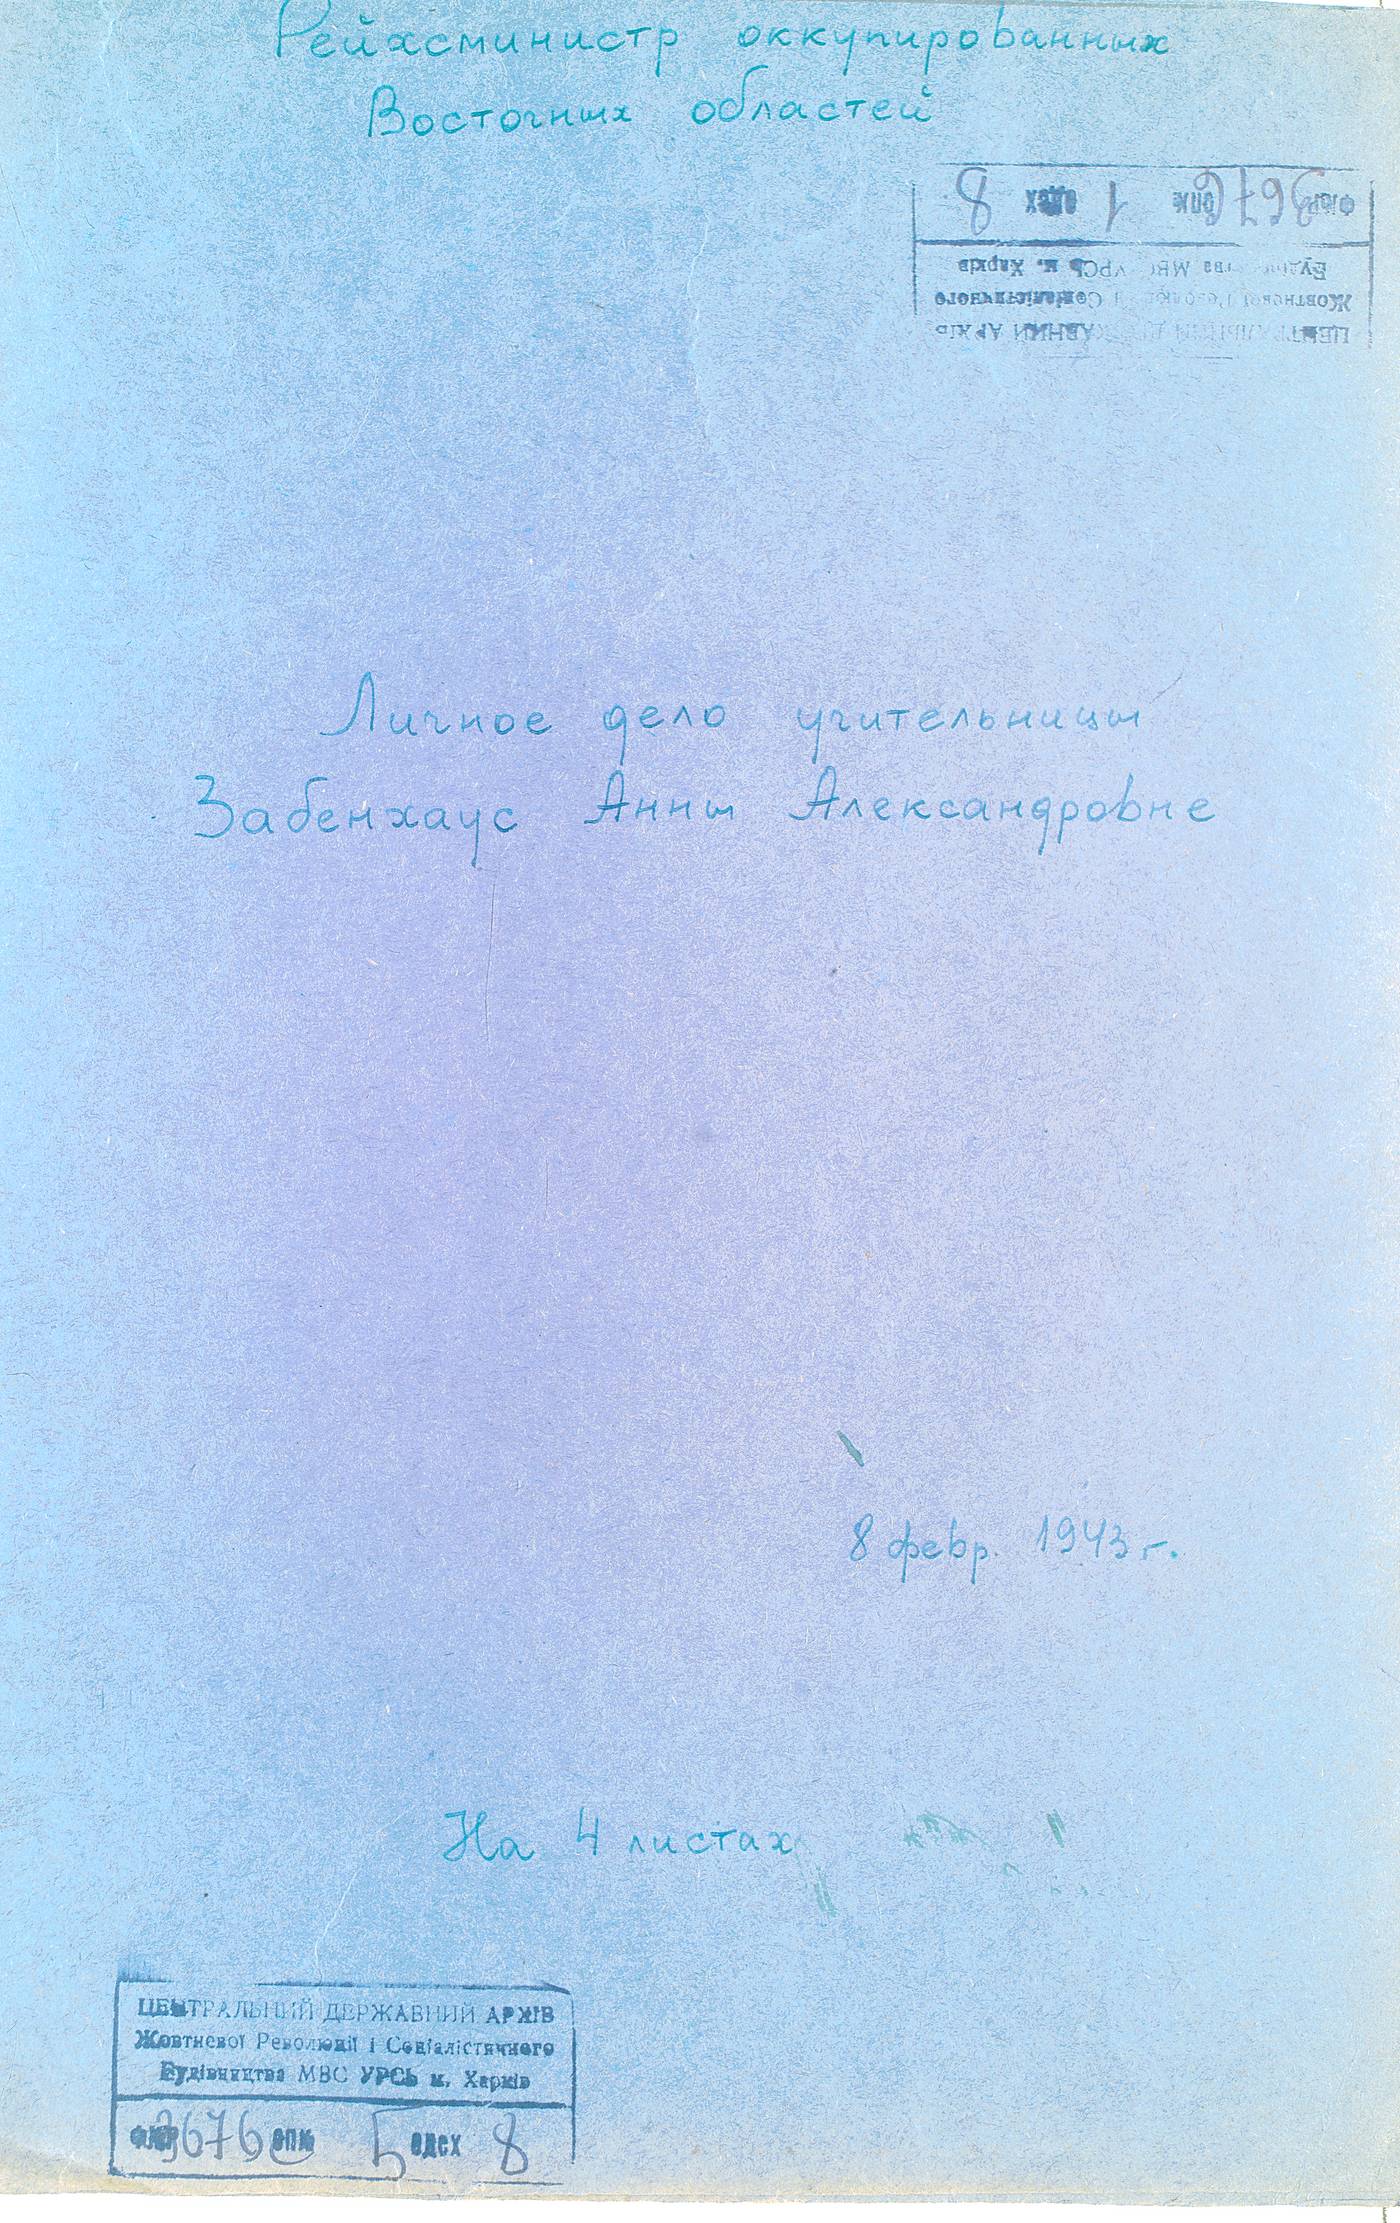 Рейхсминистр оккупированных
Восточных областей
ФНР 3676 опис 1 одсх 8
Будівництва МВС УРСР м. Харків
Жовтневої Революції і Соціалістичного
ЦЕНТРАЛЬНИЙ ДЕРЖАВНИЙ АРХІВ
Личное дело учительницы
Забенхаус Анны Александровне
8 февр. 1943 г.
На 4 листах
ЦЕНТРАЛЬНИЙ ДЕРЖАВНИЙ АРХІВ
Жовтневої Революції і Соціалістичного
Будівництва МВС УРСР м. Харків
3676 5 одсх 8